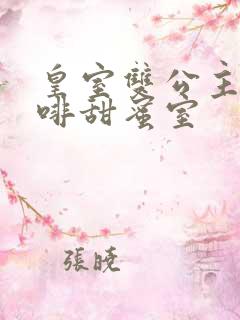 皇室雙公主
啡甜蜜室
張曉